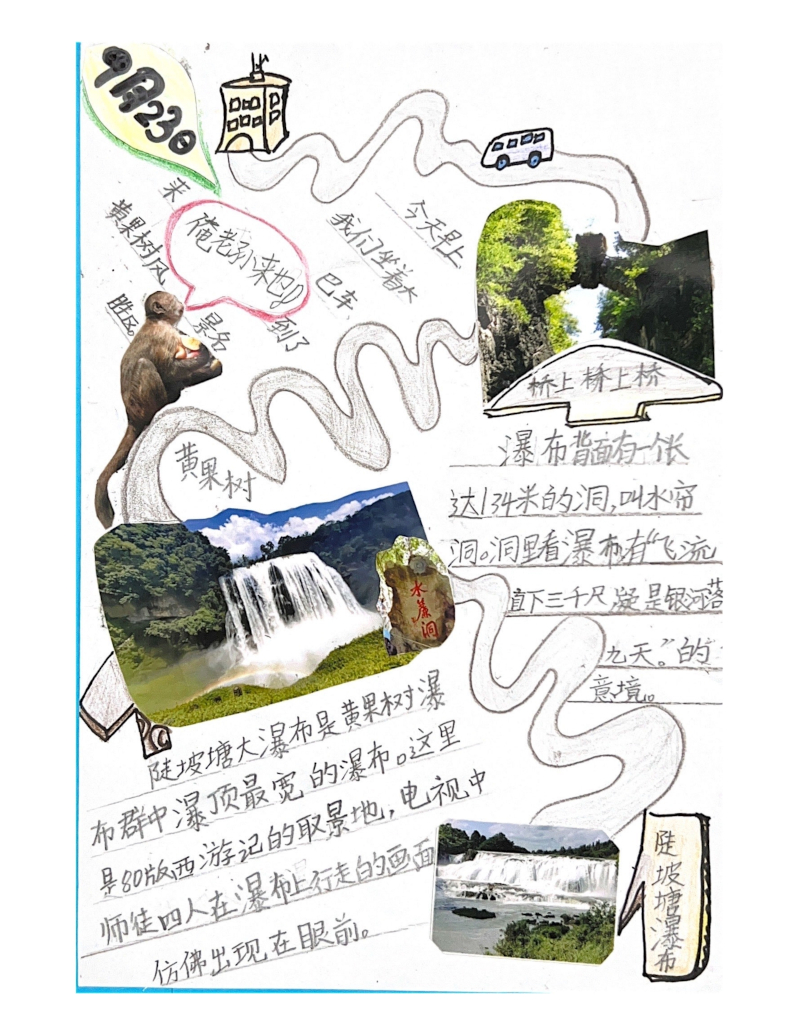 9月23日
今天早上
我们坐着大
巴车
来
到了
黄果树风
景名
胜区。
俺老孙来也!
桥上桥上桥
黄果树
水簾洞
瀑布背面有一个长
达134米的洞,叫水帘
洞。洞里看瀑布,有“飞流
直下三千尺 凝是银河落
九天。”的
意境。
陡坡塘大瀑布是黄果树瀑
布群中瀑顶最宽的瀑布。这里
是80版西游记的取景地,电视中
师徒四人在瀑布上行走的画面
仿佛出现在眼前。
陡坡塘瀑布